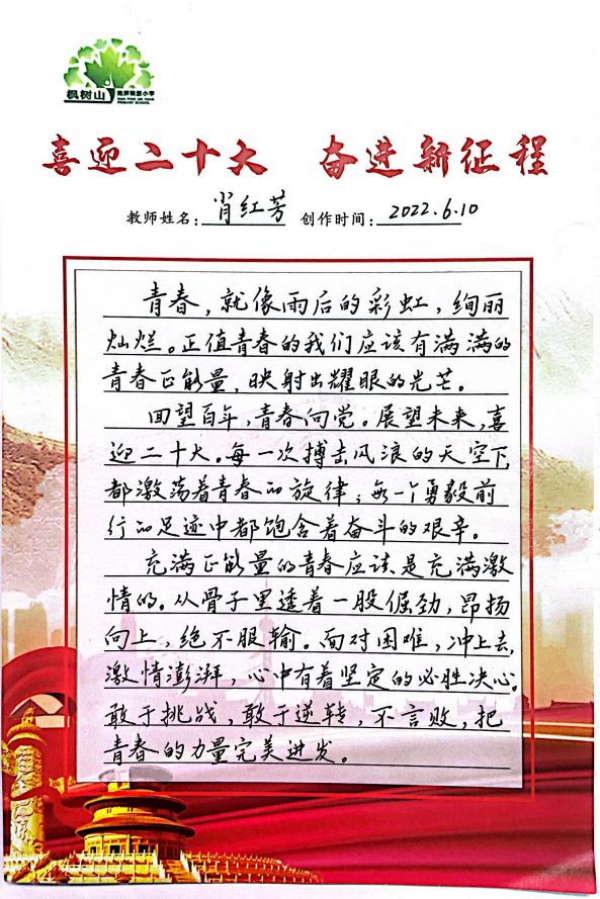 枫树山
喜迎二十大 奋进新征程
教师姓名：肖红芳 创作时间：2022.6.10
青春，就像雨后的彩虹，绚丽
灿烂。正值青春的我们应该有满满的
青春正能量，映射出耀眼的光芒。
回望百年，青春向党。展望未来，喜
迎二十大。每一次搏击风浪的天空下，
都激荡着青春的旋律；每一个勇毅前
行的足迹中都饱含着奋斗的艰辛。
充满正能量的青春应该是充满激
情的。从骨子里透着一股倔劲，昂扬
向上，绝不服输。面对困难，冲上去，
激情澎湃，心中有着坚定的必胜决心。
敢于挑战，敢于逆转，不言败，把
青春的力量完美迸发。